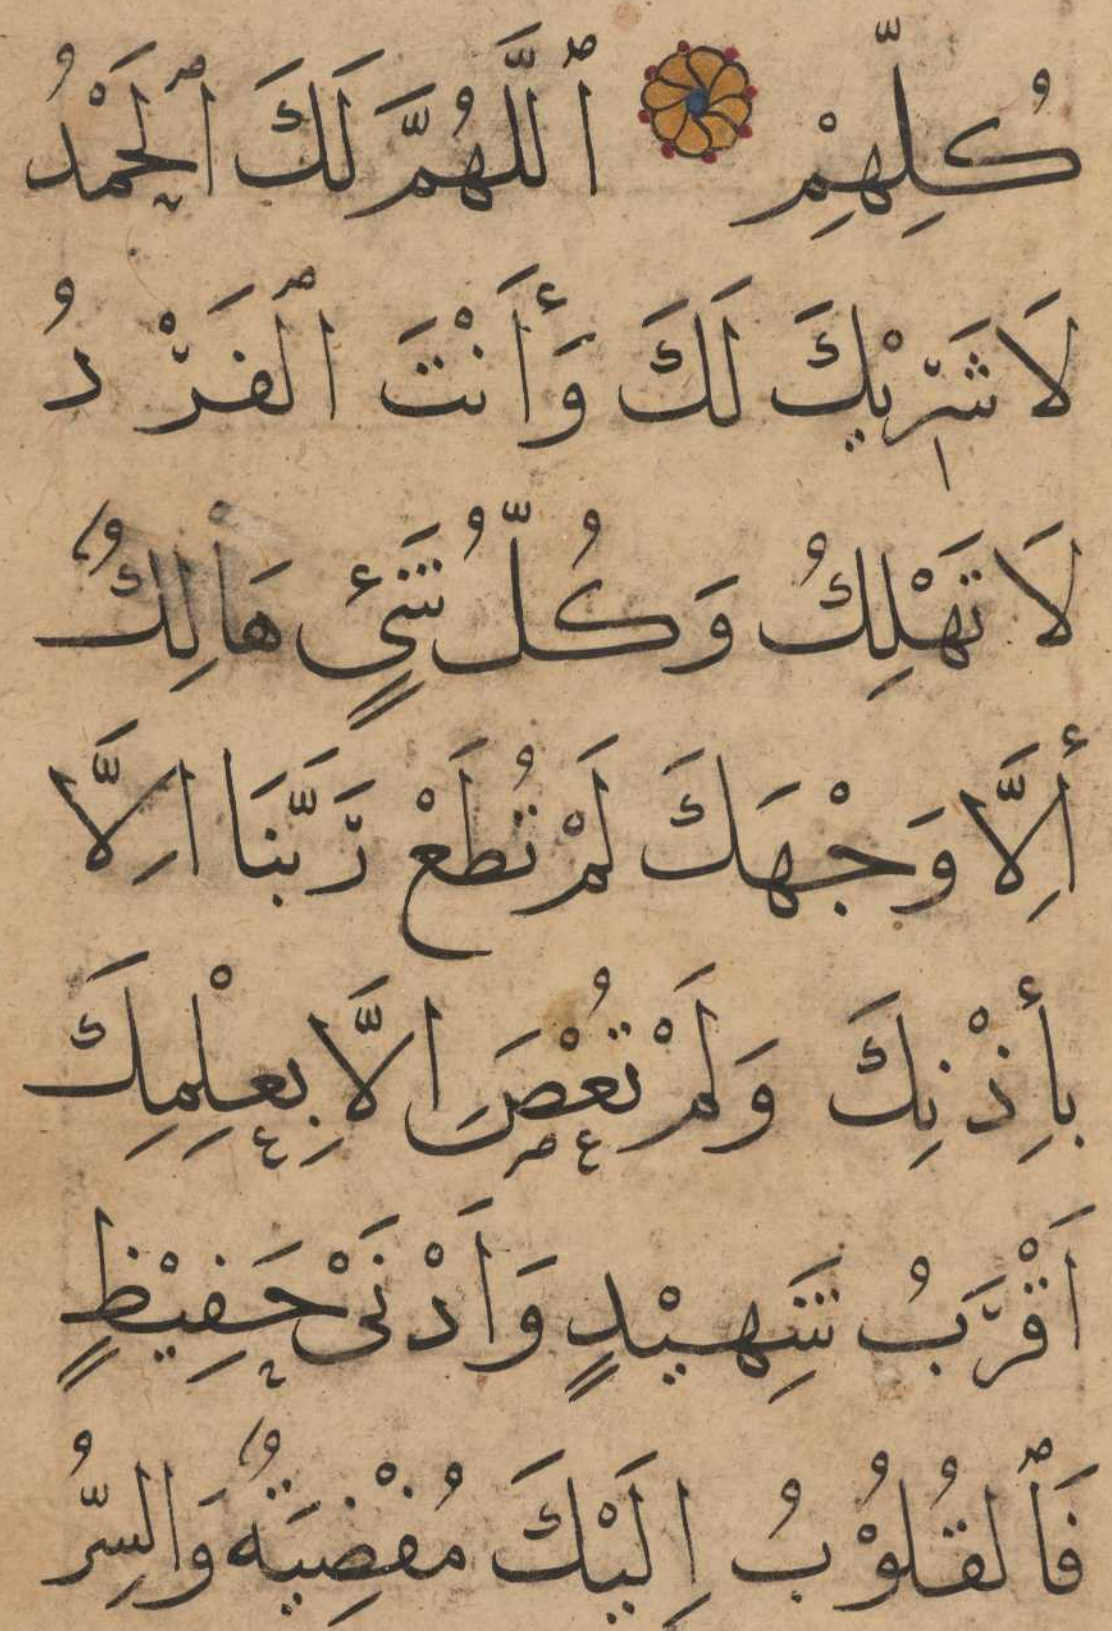 كُلِّهِمْ ٱللَّهُمَّ لَكَ ٱلْحَمْدُ
لَا شَرِيْكَ لَكَ وَأَنْتَ ٱلْفَرْدُ
لَا تَهْلِكُ وَكُلُّ شَىْءٍ هَالِكٌ
أِلَّا وَجْهَكَ لَمْ تُطَعْ رَبَّنَا اِلَّا
بأِذْنِكَ وَلَمْ تُعْصَ اِلَّا بِعِلْمِكَ
اَقْرَبُ شَهِيْدٍ وَاَدْنَىْ حَفِيْظٍ
فَٱلْقُلُوْبُ اِلَيْكَ مُفْضِيَةٌ وَالسِّرُّ